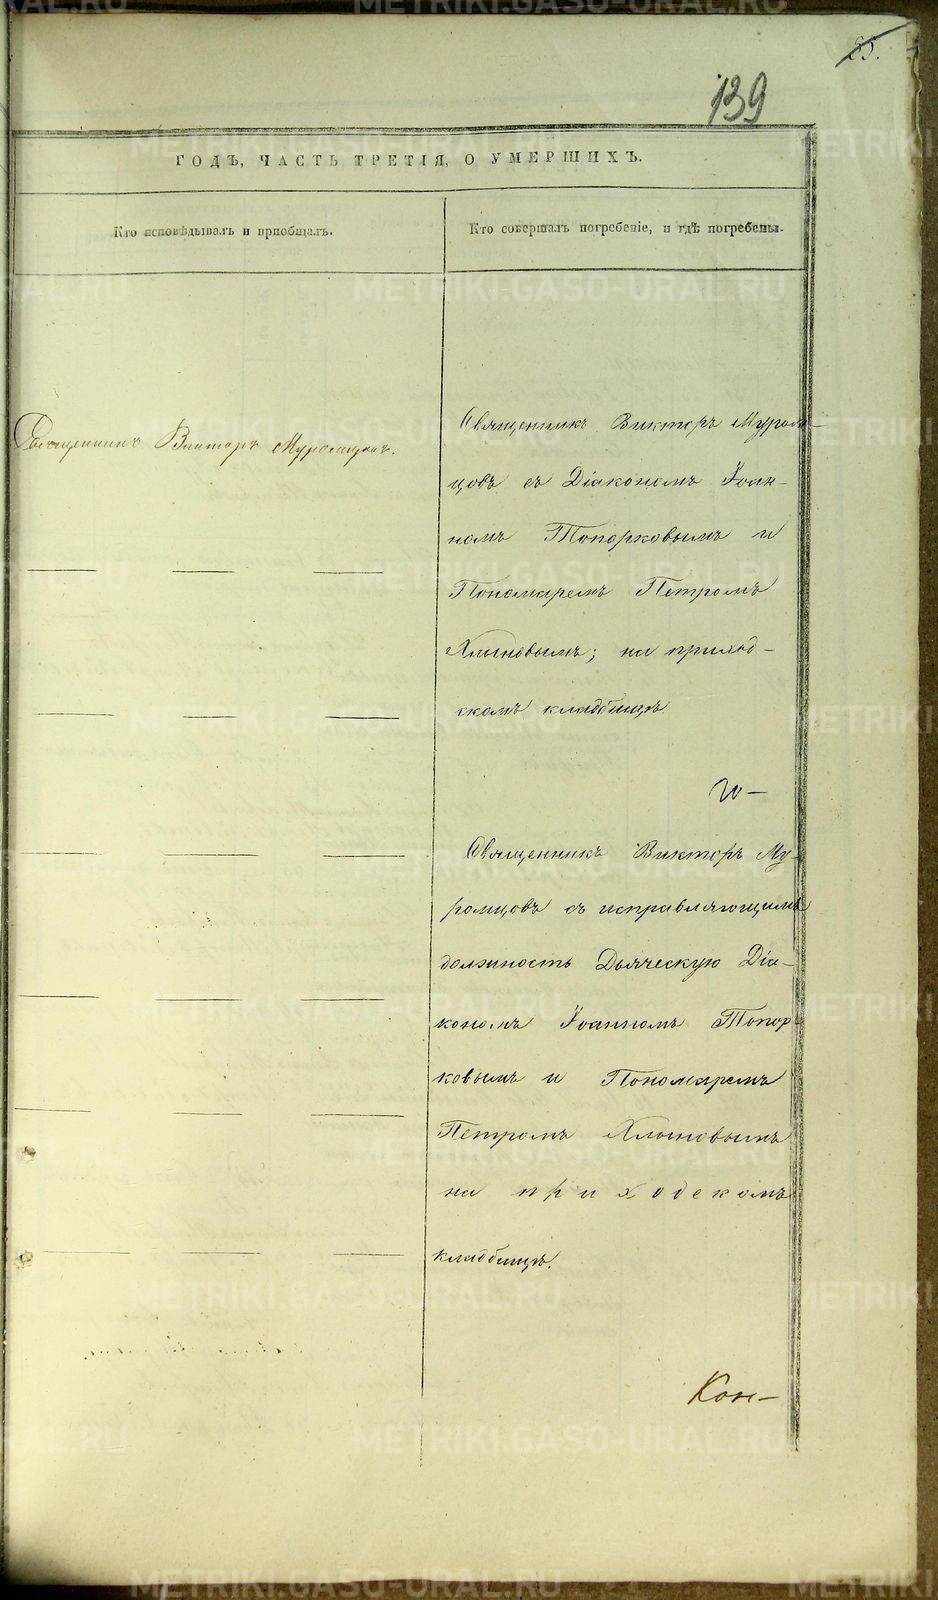 85.
139
ГОДЪ, ЧАСТЬ ТРЕТІЯ, О УМЕРШИХЪ.
Кто исповѣдывалъ и пріобщалъ.
Кто совершалъ погребеніе, и гдѣ погребены.
Священникъ Викторъ Муромцовъ.
Священникъ Викторъ Муром-
цовъ съ Діакономъ Іоан-
номъ Топорковымъ и
Пономаремъ Петромъ
Хлыновымъ; на приход-
скомъ кладбищѣ
Священникъ Викторъ Му-
ромцовъ съ исправляющимъ
должность Дьяческую Діа-
кономъ Іоанномъ Топор-
ковымъ и Пономаремъ
Петромъ Хлыновымъ
на приходскомъ
кладбищѣ.
Кон-
METRIKI.GASO-URAL.RU